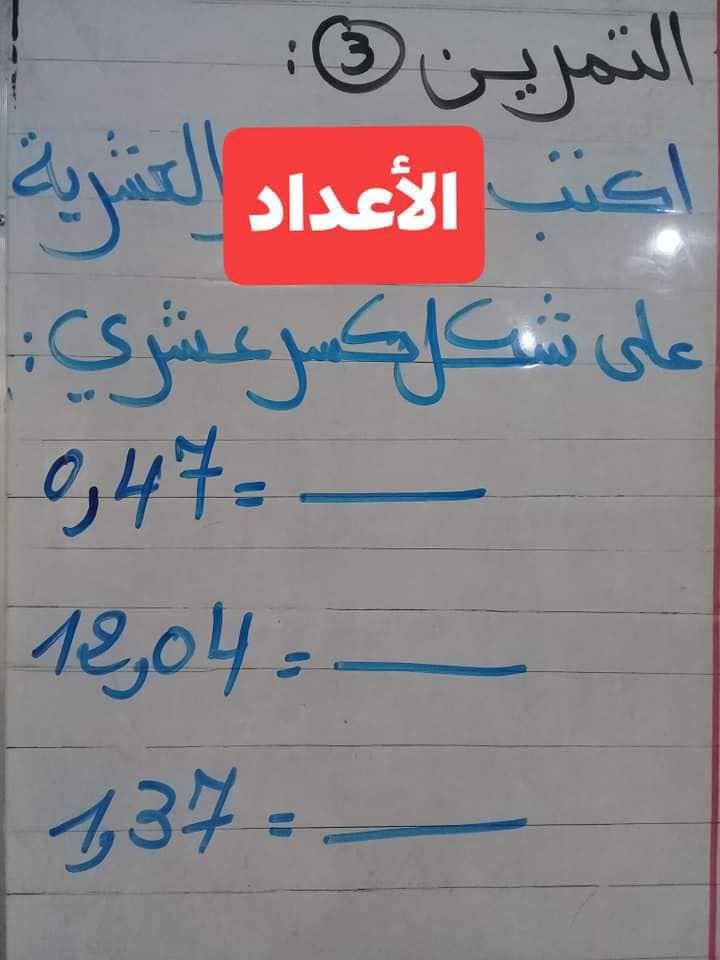 التمرين ③ :
اكتب الأعداد العشرية
على شكل كسر عشري :
0,47 = ——
12,04 = ——
1,37 = ——